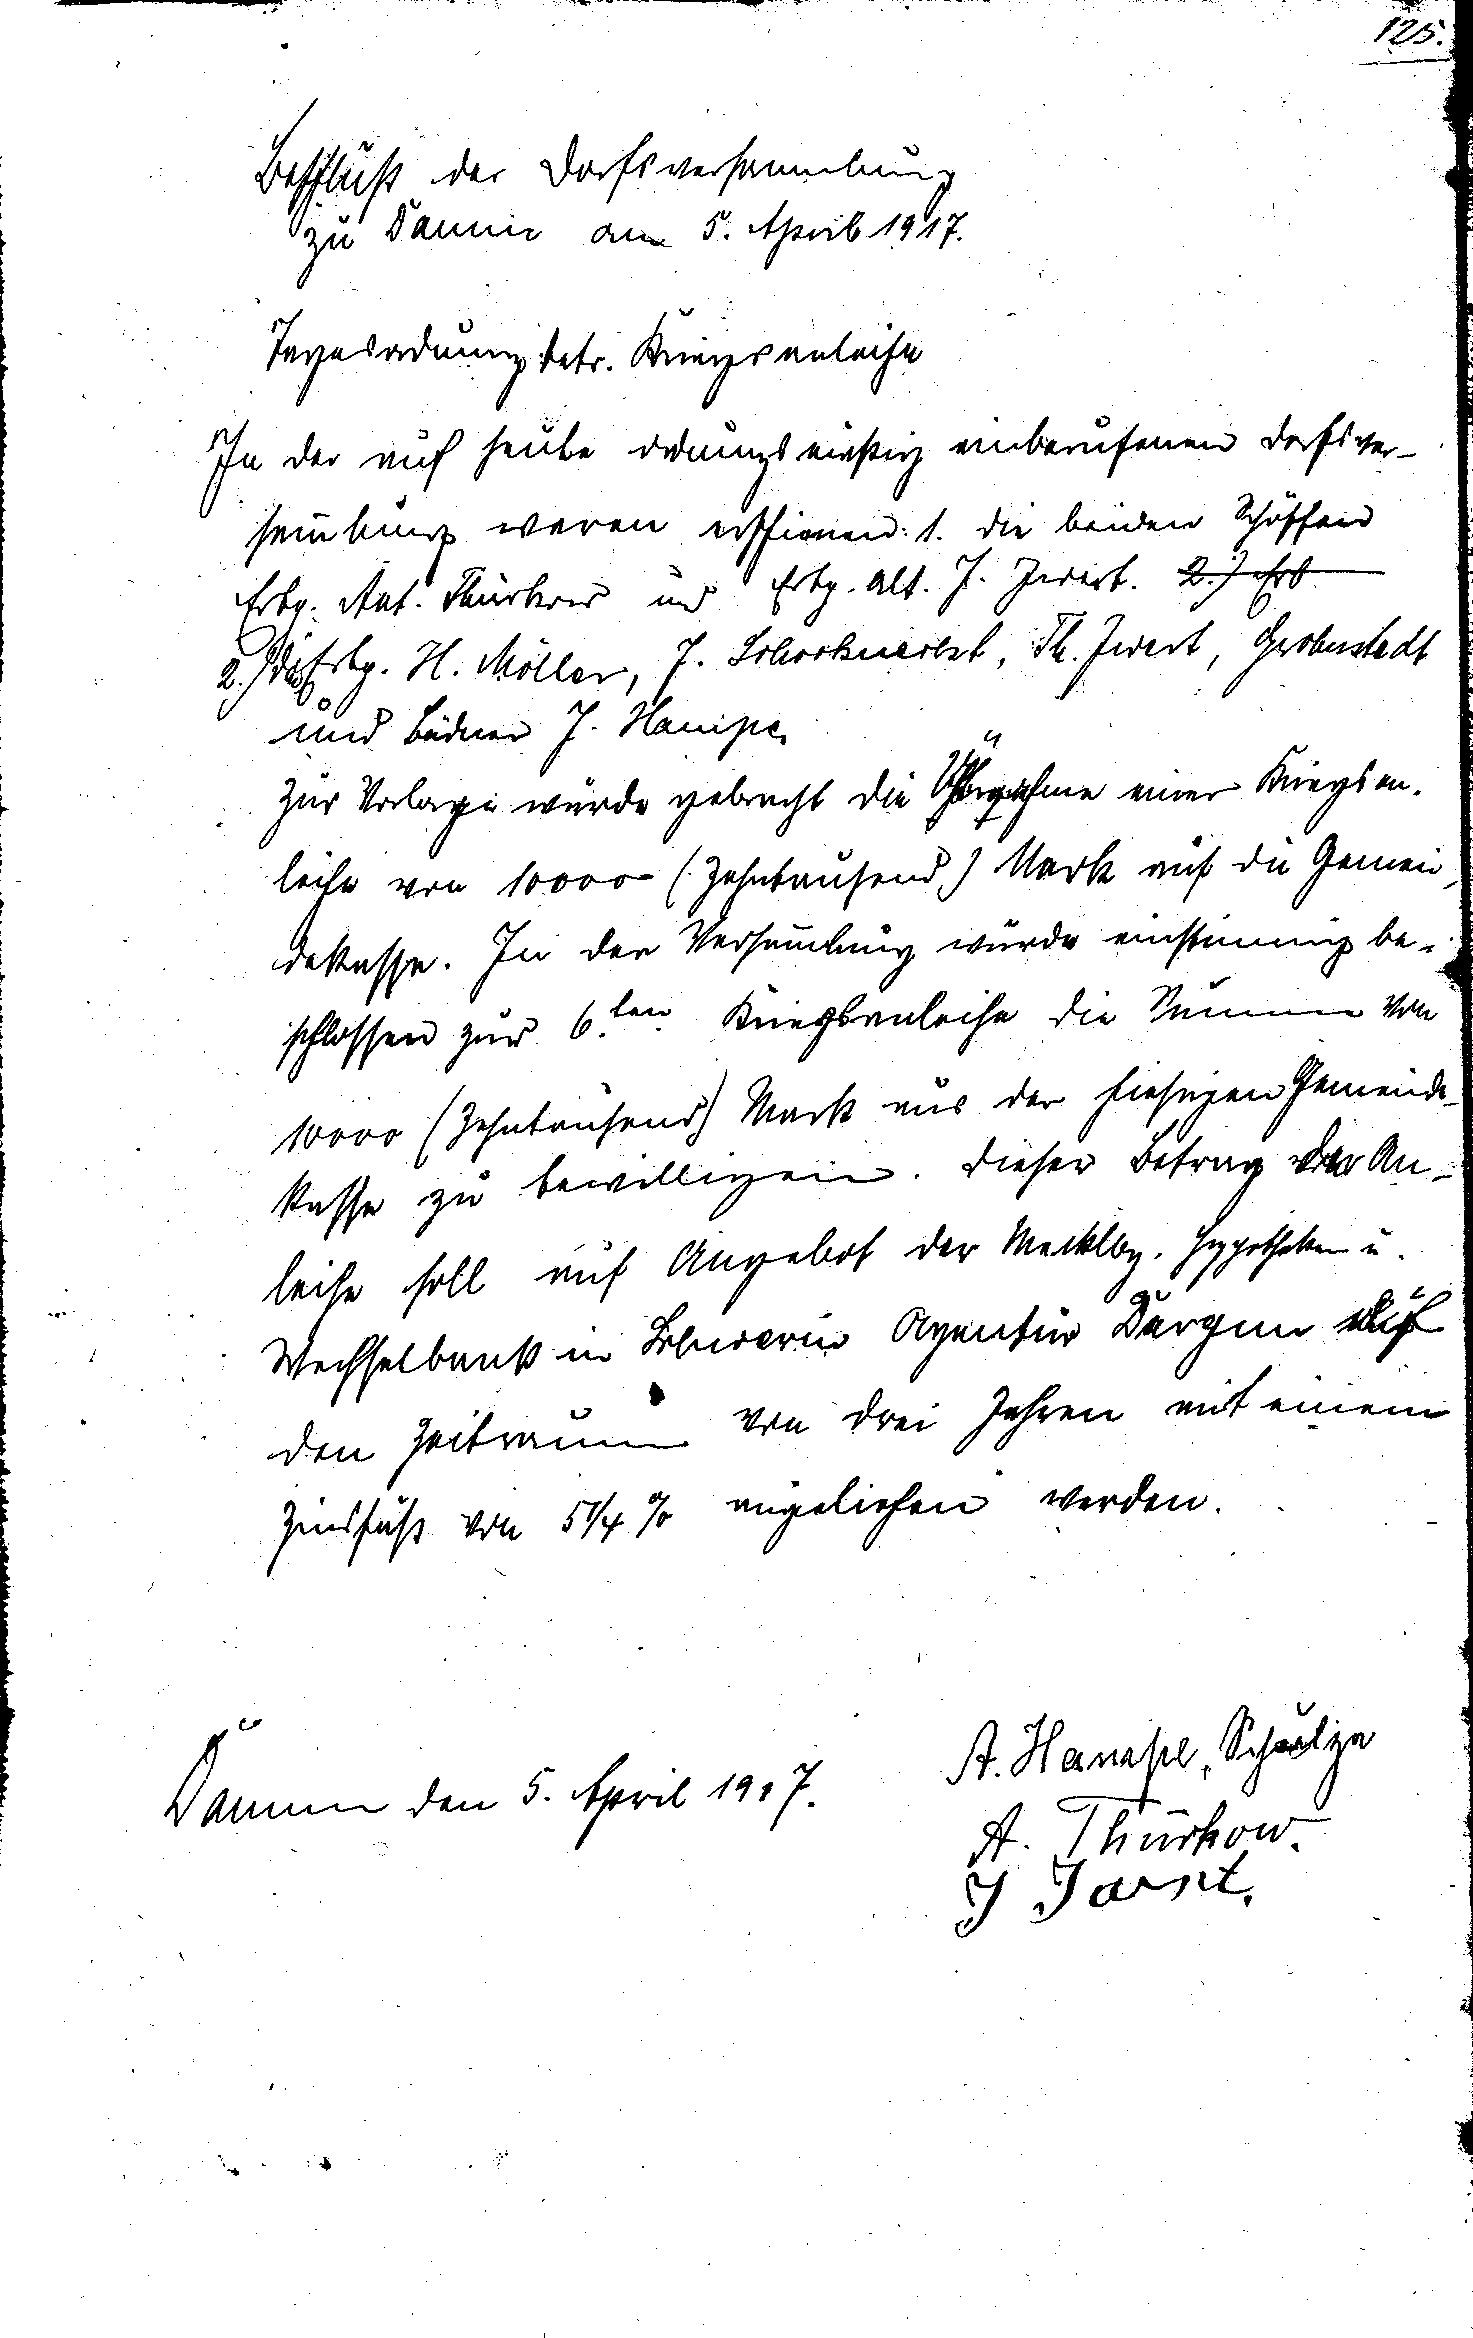 125.
Beschluß der Dorfsversammlung
zu Damm am 5. April 1917.
Tagesordnung betr. Kriegsanleihe
In der auf heute ordnungsmäßig einberufenen Dorfsver-
sam̄lung waren erschienen: 1. die beiden Schöffen
Erbp. Ant. Thürkow und Erbp. Alt. J. Jwert. 2.) Erb
2.) die Erbp. H. Möller, J. Schorknecht, Th. Jwert, Grobenstedt
und Büdner J. Hampe.
Zur Vorlage wurde gebracht die einer Kriegsan-
leihe von 10000 (Zehntausend) Mark auf die Gemein-
dekasse. In der Versam̄lung wurde einstimmig be-
schlossen zur 6.ten Kriegsanleihe die Summe von
10000 (Zehntausend) Mark aus der hiesigen Gemeinde-
kasse zu bewilligen. Dieser Betrag der An-
leihe soll auf Angebot der Mecklbg. Hypotheken u.
Wechselbank in Schwerin Agentur Dargun auf
den Zeitraum von drei Jahren mit einem
Zinsfuß von 5 1/4 % angeliehen werden.
Damm den 5. April 1917.
A. Hampe, Schulze
A. Thürkow.
J